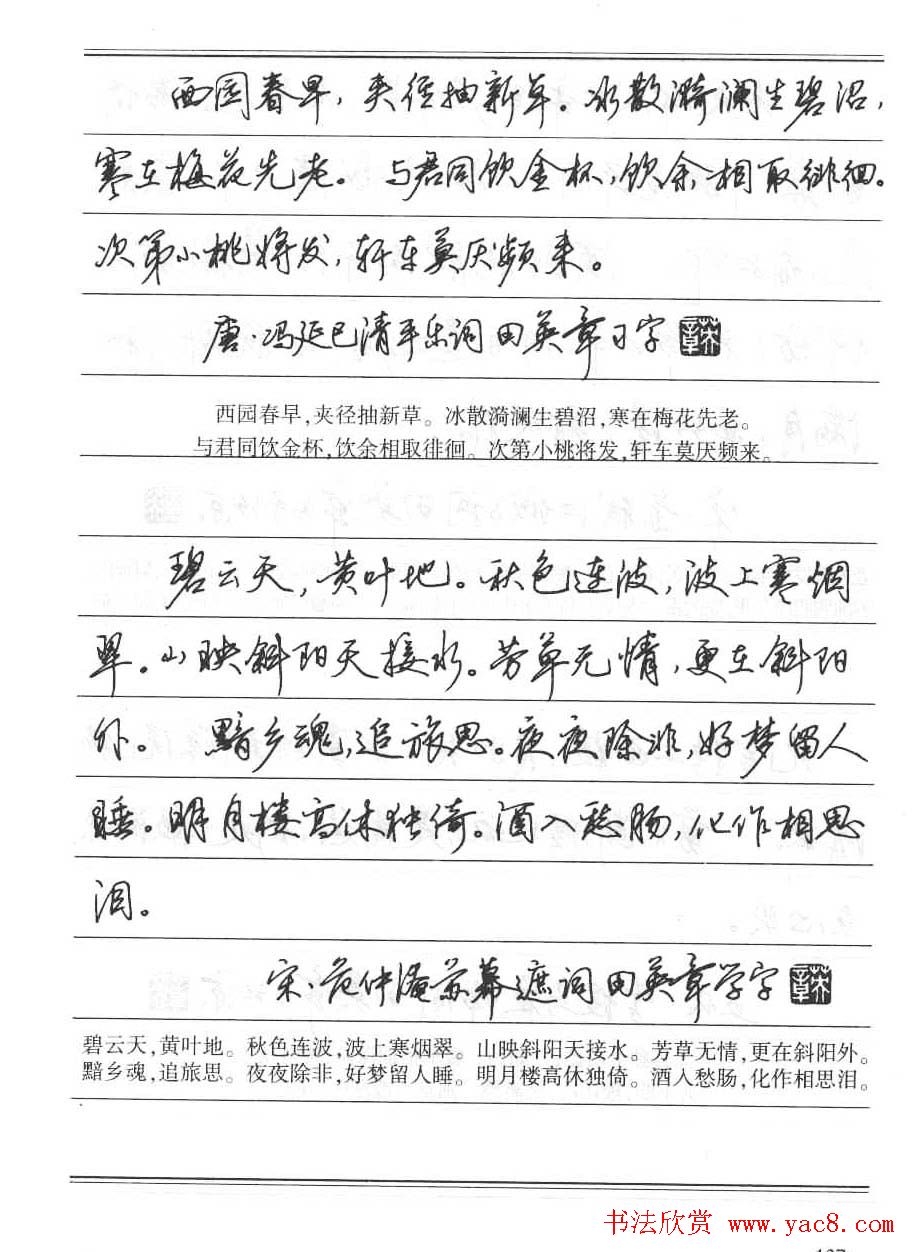 西园春早，夹径抽新草。冰散漪澜生碧沼，
寒在梅花先老。与君同饮金杯，饮余相取徘徊。
次第小桃将发，轩车莫厌频来。
唐·冯延巳清平乐词 田英章习字
西园春早，夹径抽新草。冰散漪澜生碧沼，寒在梅花先老。
与君同饮金杯，饮余相取徘徊。次第小桃将发，轩车莫厌频来。
碧云天，黄叶地。秋色连波，波上寒烟
翠。山映斜阳天接水。芳草无情，更在斜阳
外。黯乡魂，追旅思。夜夜除非，好梦留人
睡。明月楼高休独倚。酒入愁肠，化作相思
泪。
宋·范仲淹苏幕遮词 田英章学字
碧云天，黄叶地。秋色连波，波上寒烟翠。山映斜阳天接水。芳草无情，更在斜阳外。
黯乡魂，追旅思。夜夜除非，好梦留人睡。明月楼高休独倚。酒入愁肠，化作相思泪。
书法欣赏 www.yac8.com